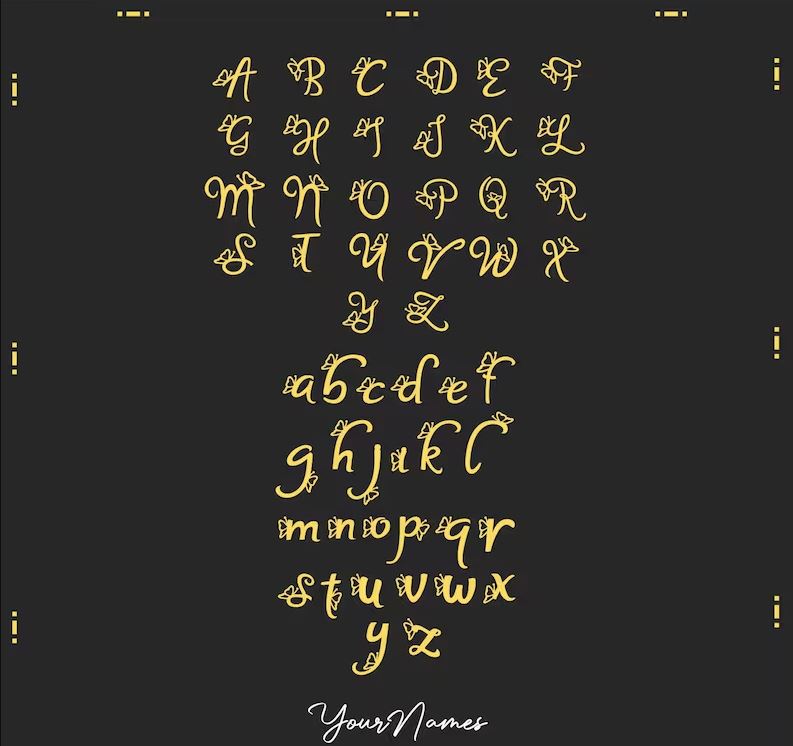 A B C D E F
G H I J K L
M N O P Q R
S T U V W X
Y Z
a b c d e f
g h j ı k l
m n o p q r
s t u v w x
y z
YourNames